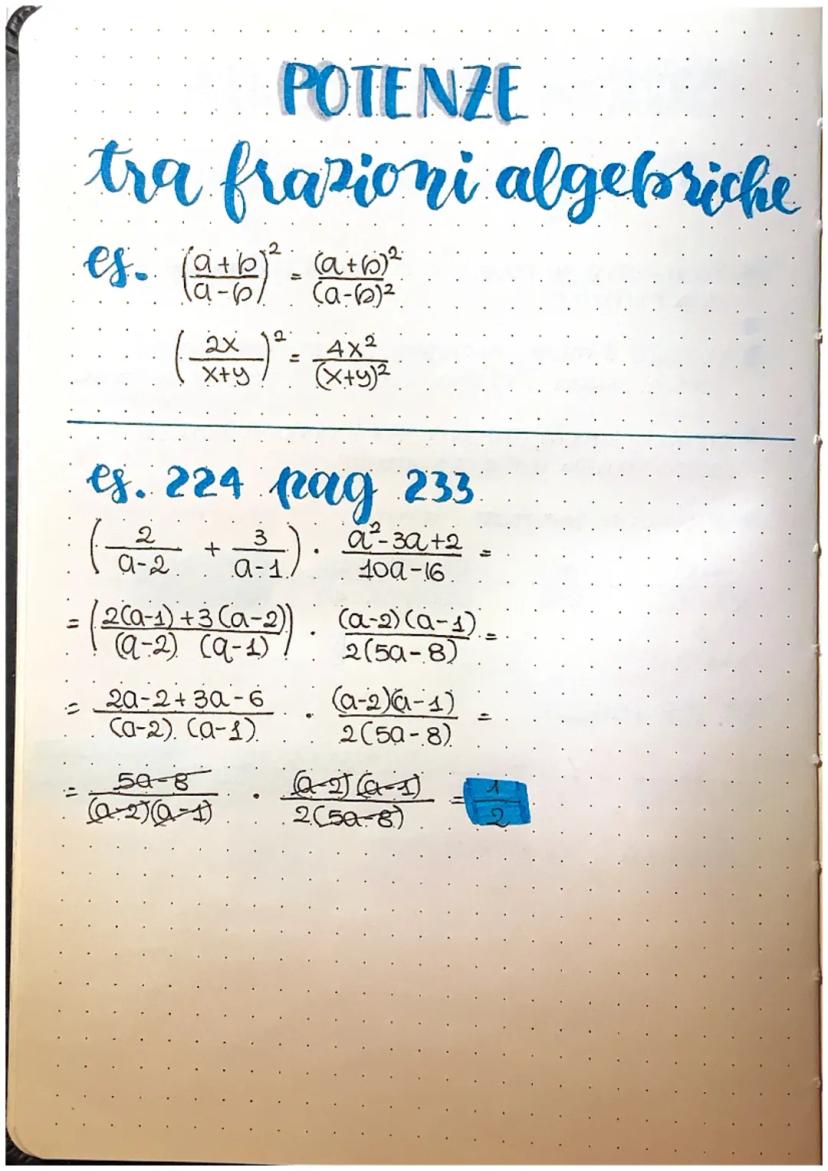 POTENZE
tra frazioni algebriche
es. ((a+b)/(a-b))² = (a+b)²/(a-b)²
(2x/(x+y))² = 4x²/(x+y)²
es. 224 pag 233
(2/(a-2) + 3/(a-1)) · (a²-3a+2)/(10a-16) =
= ((2(a-1)+3(a-2))/((a-2)(a-1))) · ((a-2)(a-1))/(2(5a-8)) =
= (2a-2+3a-6)/((a-2)(a-1)) · ((a-2)(a-1))/(2(5a-8)) =
= (5a-8)/((a-2)(a-1)) · ((a-2)(a-1))/(2(5a-8)) = 1/2